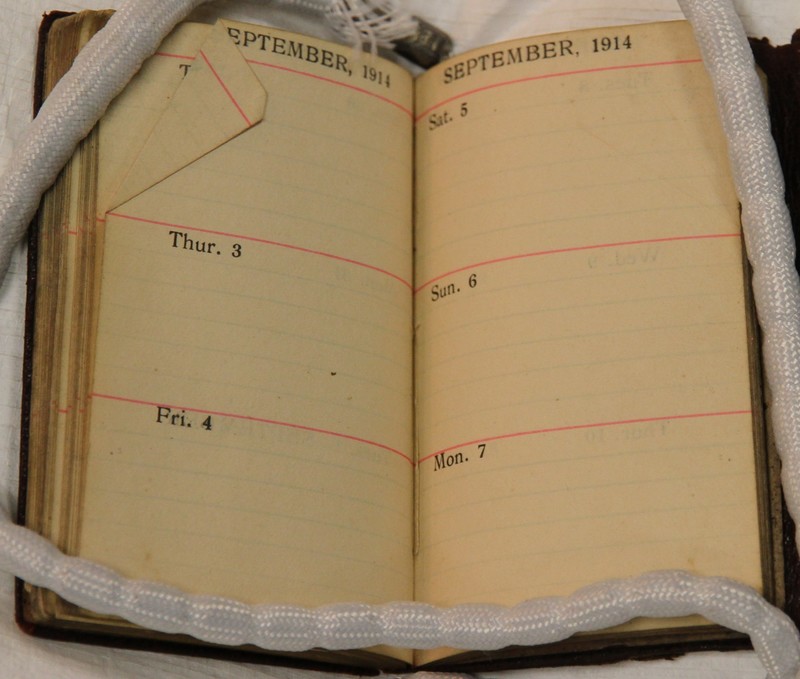 EPTEMBER, 1914
T
Thur. 3
Fri. 4
SEPTEMBER, 1914
Sat. 5
Sun. 6
Mon. 7